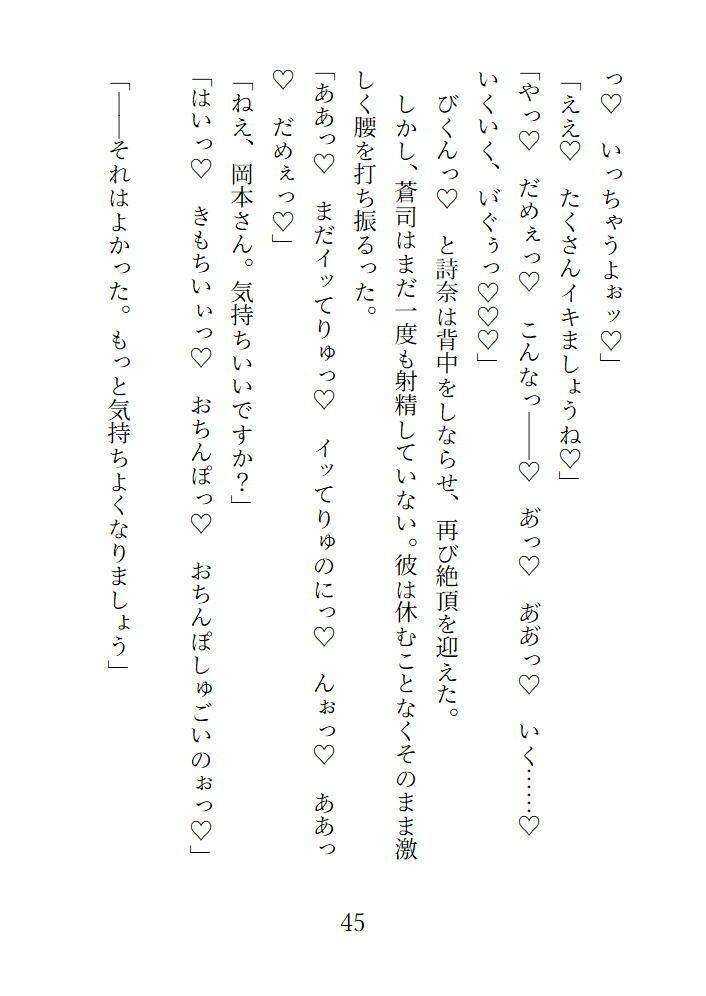 っ♡　いっちゃうよぉッ♡」
「ええ♡　たくさんイキましょうね♡」
「やっ♡　だめぇっ♡　こんなっ――♡　あ゙っ♡　あ゙あ゙っ♡　いく……♡
いくいく、い゙ぐぅっ♡♡♡」
　びくんっ♡　と詩奈は背中をしならせ、再び絶頂を迎えた。
　しかし、蒼司はまだ一度も射精していない。彼は休むことなくそのまま激
しく腰を打ち振るった。
「ああっ♡　まだイッてりゅっ♡　イッてりゅのにっ♡　んぉっ♡　ああっ
♡　だめぇっ♡」
「ねえ、岡本さん。気持ちいいですか？」
「はいっ♡　きもちいぃっ♡　おちんぽっ♡　おちんぽしゅごいのぉっ♡」
「――それはよかった。もっと気持ちよくなりましょう」
45